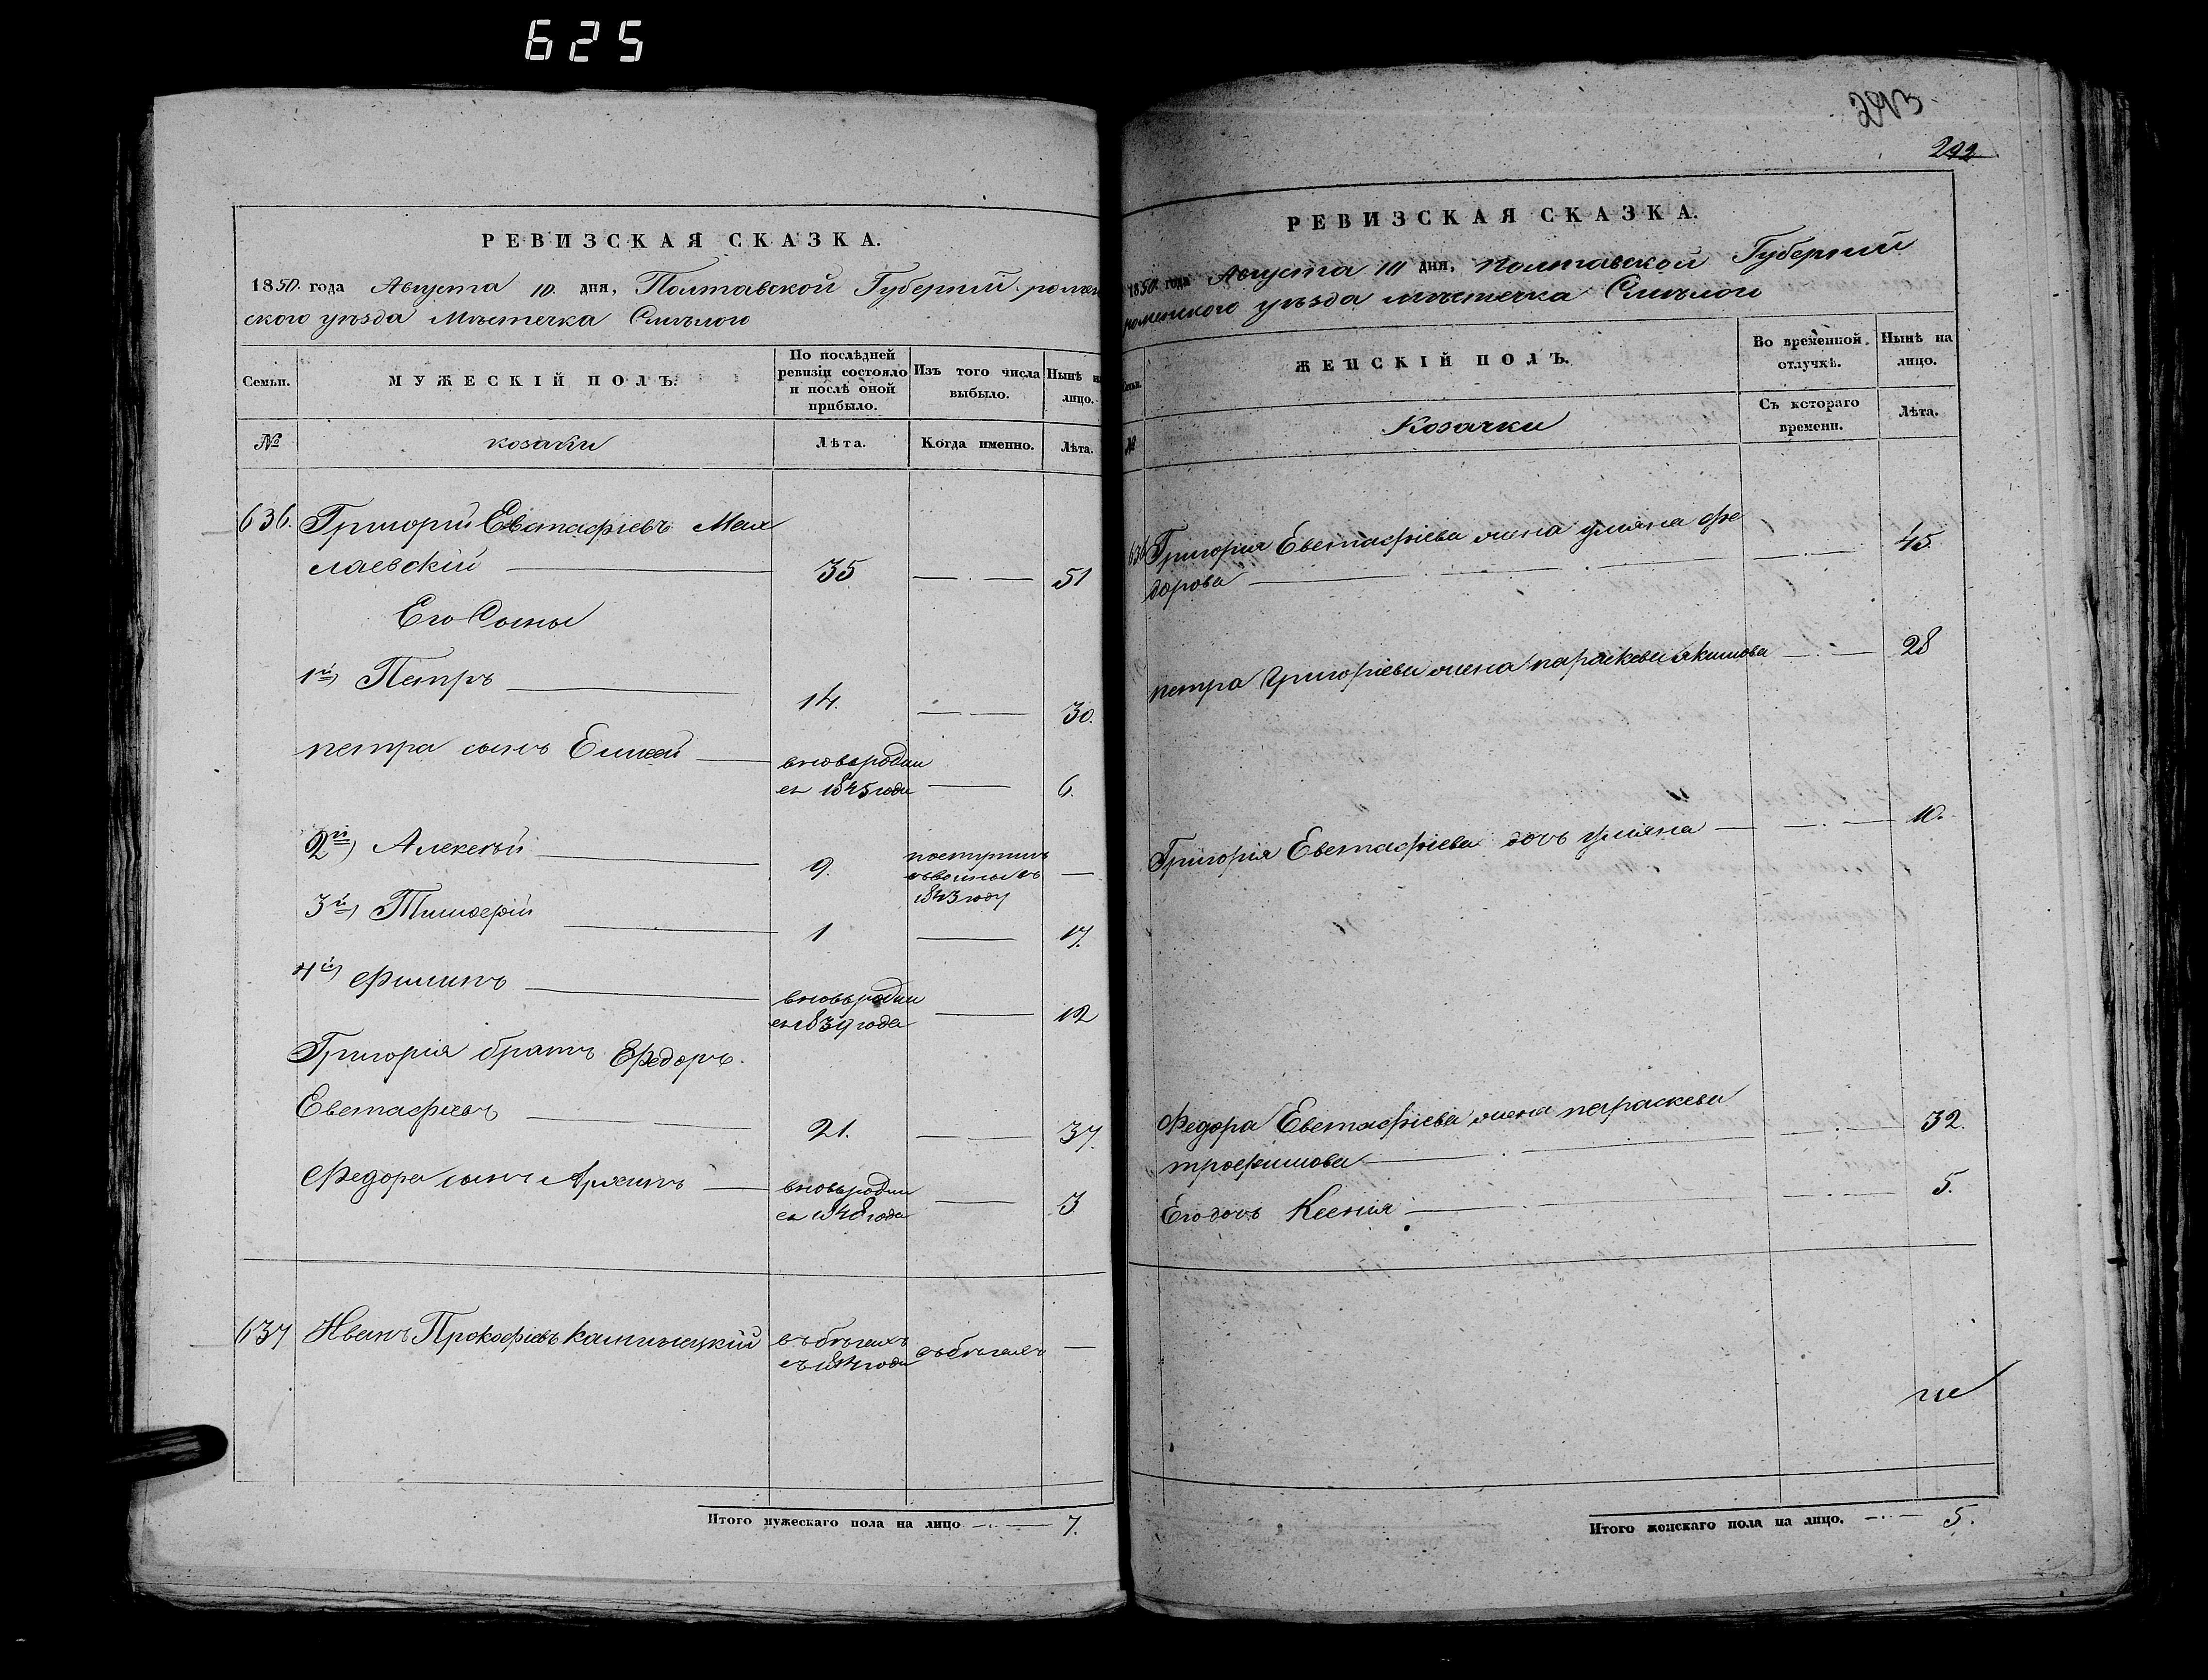 625
РЕВИЗСКАЯ СКАЗКА.
1850. года Августа 10. дня, Полтавской Губерніи ромен
ского уѣзда Мѣстечка Смѣлого
Семьи.
МУЖЕСКІЙ ПОЛЪ.
По послѣдней
ревизіи состояло
и послѣ оной
прибыло.
Изъ того числа
выбыло.
Нынѣ н
лицо.
№
козаки
Лѣта.
Когда именно.
Лѣта.
636. Григорій Евстафіевъ
лаевскій 35 51
Его Сыны
1й) Петръ 14. 30.
петра сынъ вновьродил
ся 1845 года 6.
2й) Алексѣй 9. поступилъ
1843 году
3й) Тимофѣй 1 17.
4й) Филипъ вновьродил
ся 1839 года 12
Григорія братъ Федоръ
Евстафіевъ 21. 37.
Федора сынъ Архипъ вновьродил
ся 1848 года 3
637 Иванъ Прокофіевъ въ бѣгахъ
въ бѣгахъ
Итого мужескаго пола на лицо 7.
293
292
РЕВИЗСКАЯ СКАЗКА.
1850. года Августа 10 дня, Полтавской Губерніи
роменского уѣзда мѣстечка Смѣлого
Семьи.
ЖЕНСКІЙ ПОЛЪ.
Во временной
отлучкѣ.
Нынѣ на
лицо.
№
Козачки
Съ котораго
времени.
Лѣта.
636 Григорія Евстафіева жена уліяна фе
дорова 45.
петра Григоріева жена параскева якимова 28
Григорія Евстафіева дочь уліяна 10.
Федора Евстафіева жена параскева
трофимова 32.
Его дочь Ксенія 5.
Итого женскаго пола на лицо. 5.